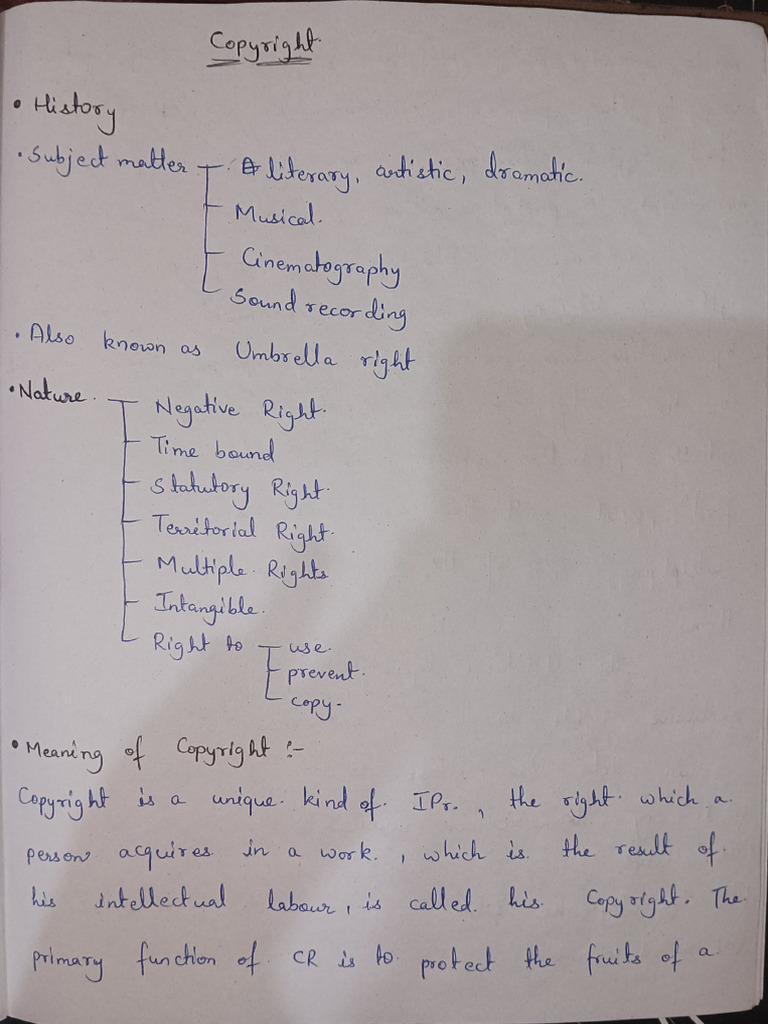 Copyright.
• History
• Subject matter - literary, artistic, dramatic.
- Musical.
- Cinematography
- Sound recording
• Also known as Umbrella right
• Nature. - Negative Right.
- Time bound
- Statutory Right.
- Territorial Right.
- Multiple Rights
- Intangible.
- Right to - use.
- prevent.
- copy-
• Meaning of Copyright :-
Copyright is a unique kind of IPr., the right which a
person acquires in a work., which is the result of
his intellectual labour, is called his Copyright. The
primary function of CR is to protect the fruits of a